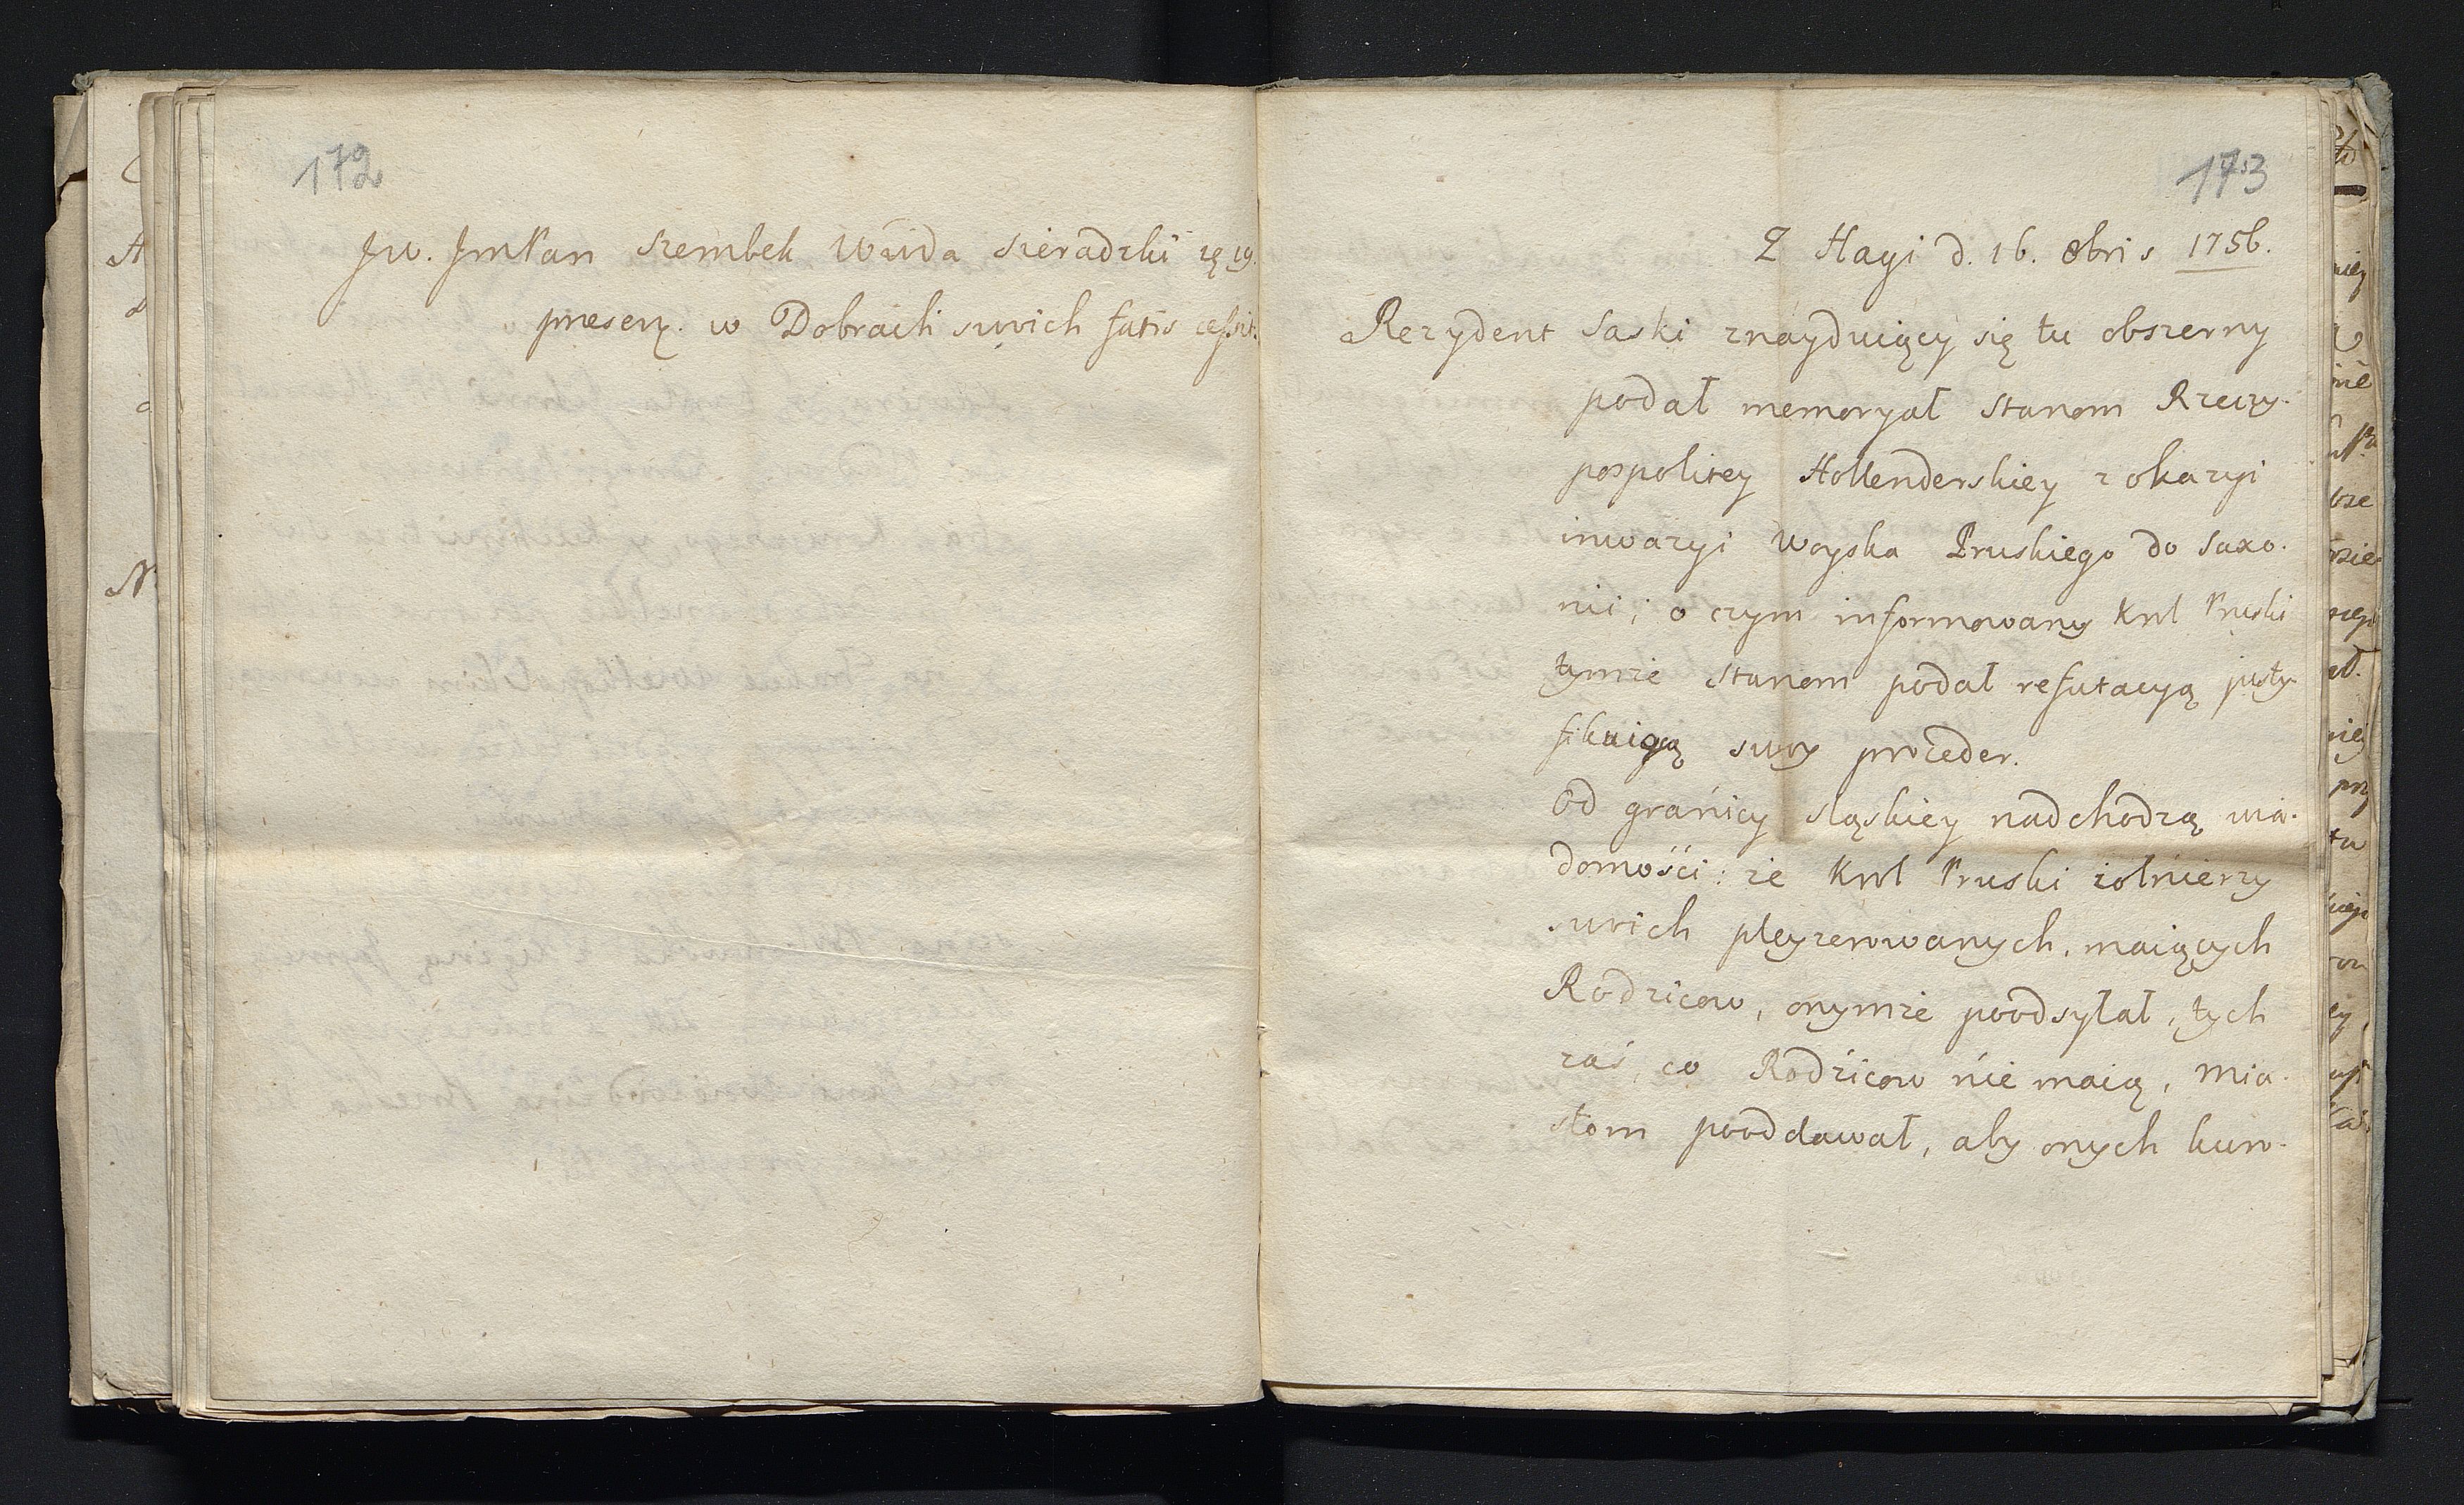 172
Jw. JmPan Szembek Wwda Sieradzki
presen. w Dobrach swich fatis cessit.
173
Z Hagi d. 16. 8bris 1756.
Rezydent Saski znayduiący się tu obszerny
podał memoryał Stanom Rzeczy-
pospolitey Hollenderskiey z okazyi
inwazyi Woyska Pruskiego do Saxo-
nii; o czym informowany Krol Pruski
tymże Stanom podał refutacyą justy-
fikuiącą swoy proceder.
Od granicy sląskiey nadchodzą wia-
domości: że Krol Pruski żołnierzy
swich pleyzerowanych, maiących
Rodzicow, onymże poodsyłał, tych
zaś, co Rodzicow nie maią, Mia-
stom pooddawał, aby onych kuro-